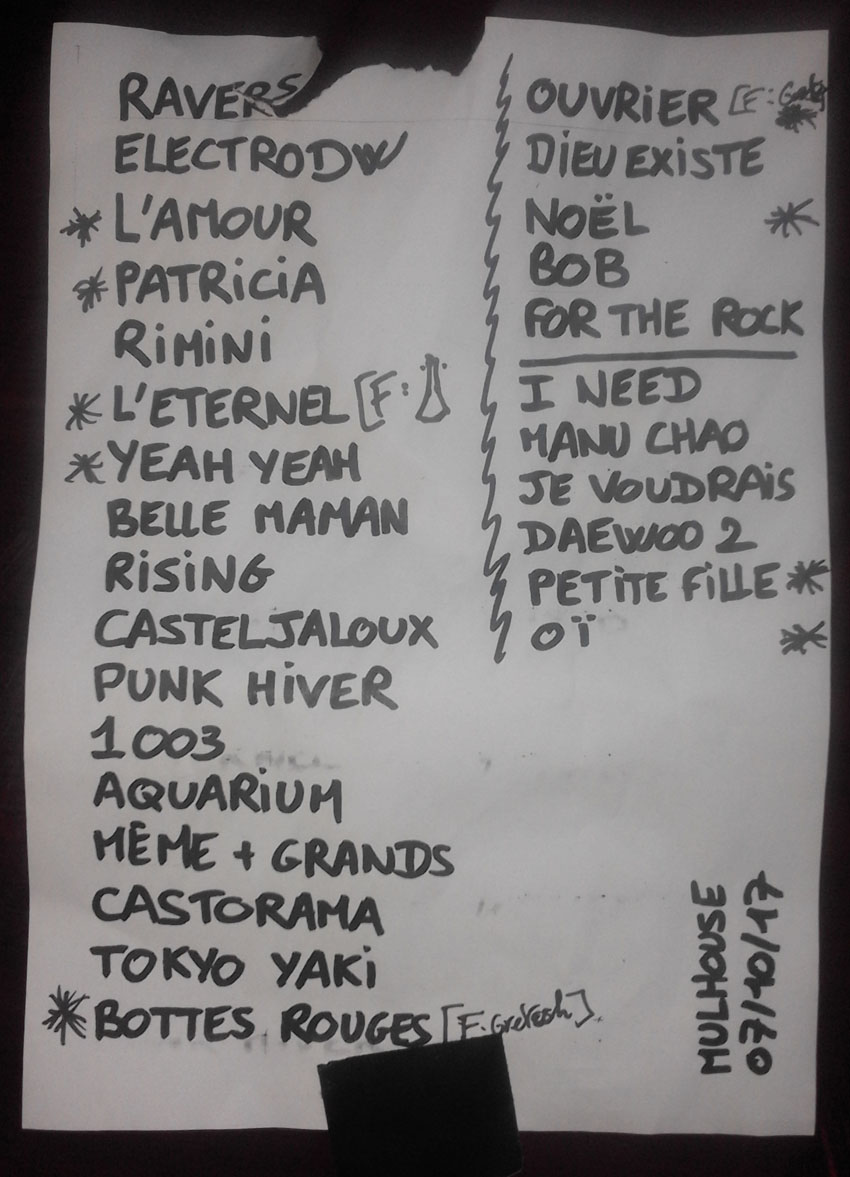 RAVERS
ELECTRODW
* L'AMOUR
* PATRICIA
RIMINI
* L'ETERNEL [F:
* YEAH YEAH
BELLE MAMAN
RISING
CASTELJALOUX
PUNK HIVER
1003
AQUARIUM
MÊME + GRANDS
CASTORAMA
TOKYO YAKI
* BOTTES ROUGES [F.
OUVRIER [F: *
DIEU EXISTE
NOËL *
BOB
FOR THE ROCK
I NEED
MANU CHAO
JE VOUDRAIS
DAEWOO 2
PETITE FILLE *
OÏ *
MULHOUSE
07/10/17